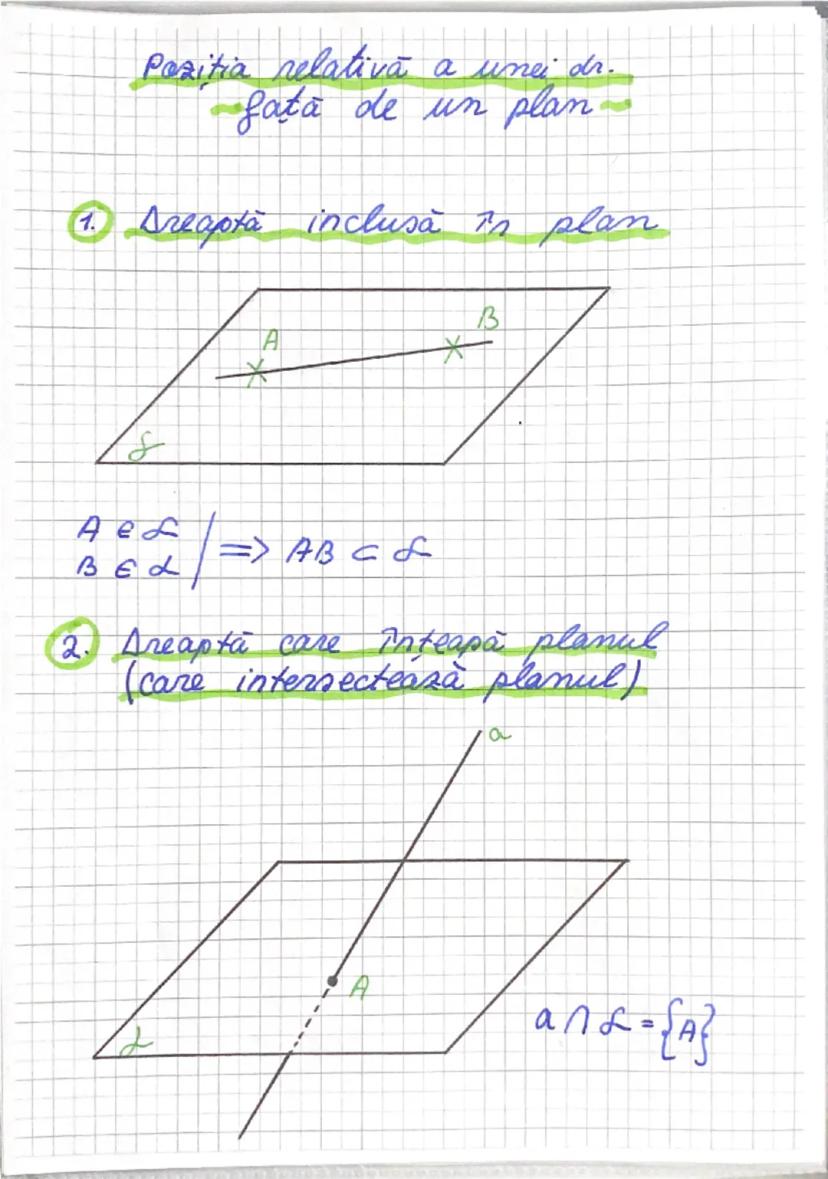 Poziția relativă a unei dr.
față de un plan
1. Dreaptă inclusă în plan
A
B
α
A ∈ α
B ∈ α | => AB ⊂ α
2. Dreaptă care înțeapă planul
(care intersectează planul)
a
A
α
a ∩ α = {A}